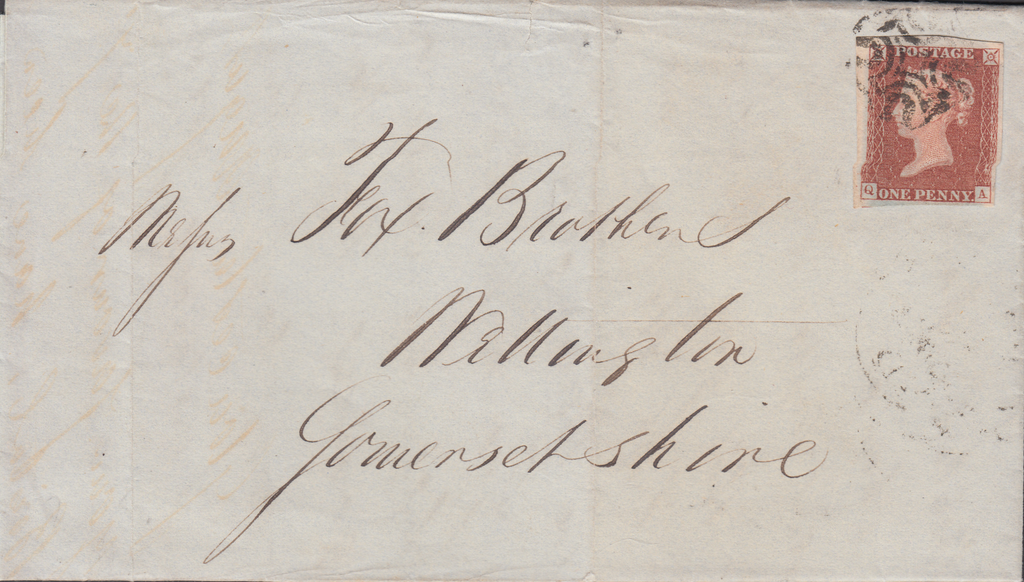 POSTAGE
ONE PENNY.
Q A
Messrs Fox Brothers
Wellington
Somersetshire